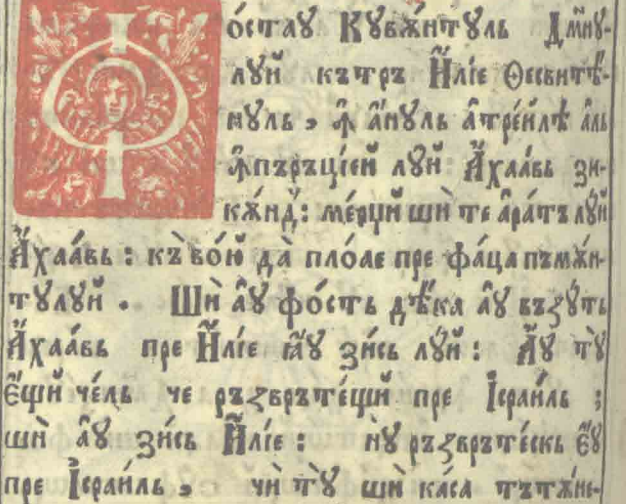 Фостаꙋ Кꙋвѫ́нтꙋль Дмⷩ҇ꙋ-
лꙋй кътръ И҆лі́е Ѳесвитѣ́-
нꙋль , ꙟ҆ а҆́нꙋль а҆трéилѣ а҆ль
ꙟ҆пъръцїе́й лꙋ́й : А҆хаа́вь зи-
кѫ́нд꙽ : ме́рци ши те а҆ра́тъ лꙋ́й
А҆хаа́вь : къ во́ю да̀ пло́ае пре фа́ца пъмѫ́н-
тꙋлꙋй . Ши а҆́ꙋ фо́сть дѣ́кꙗ а҆́ꙋ възꙋ́ть
А҆хаа́вь пре И҆лі́е ꙗ҆́ꙋ зи́сь лꙋ́й : А҆́ꙋ тꙋ̀
є҆́щи че́ль че ръꙁврътéщи пре І҆сраи́ль ;
ши а҆́ꙋ зи́сь И҆лі́е : нꙋ ръꙁврътéскь є҆́ꙋ
пре І҆сраи́ль , чи тꙋ̀ ши ка́са тътѫ́не-